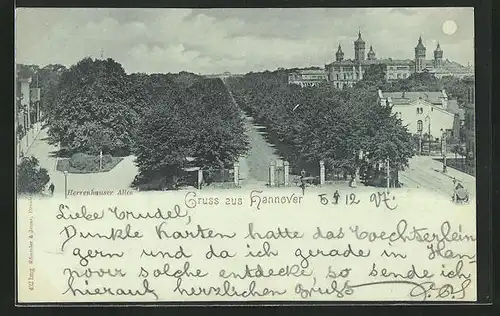 Herrenhauser Allee
Gruss aus Hannover
5/12 97.
Liebe Trudel,
Dunkle Karten hatte das Toechterlein
gern und da ich gerade in Han
nover solche entdecke, so sende ich
hierauf herzlichen Gruß